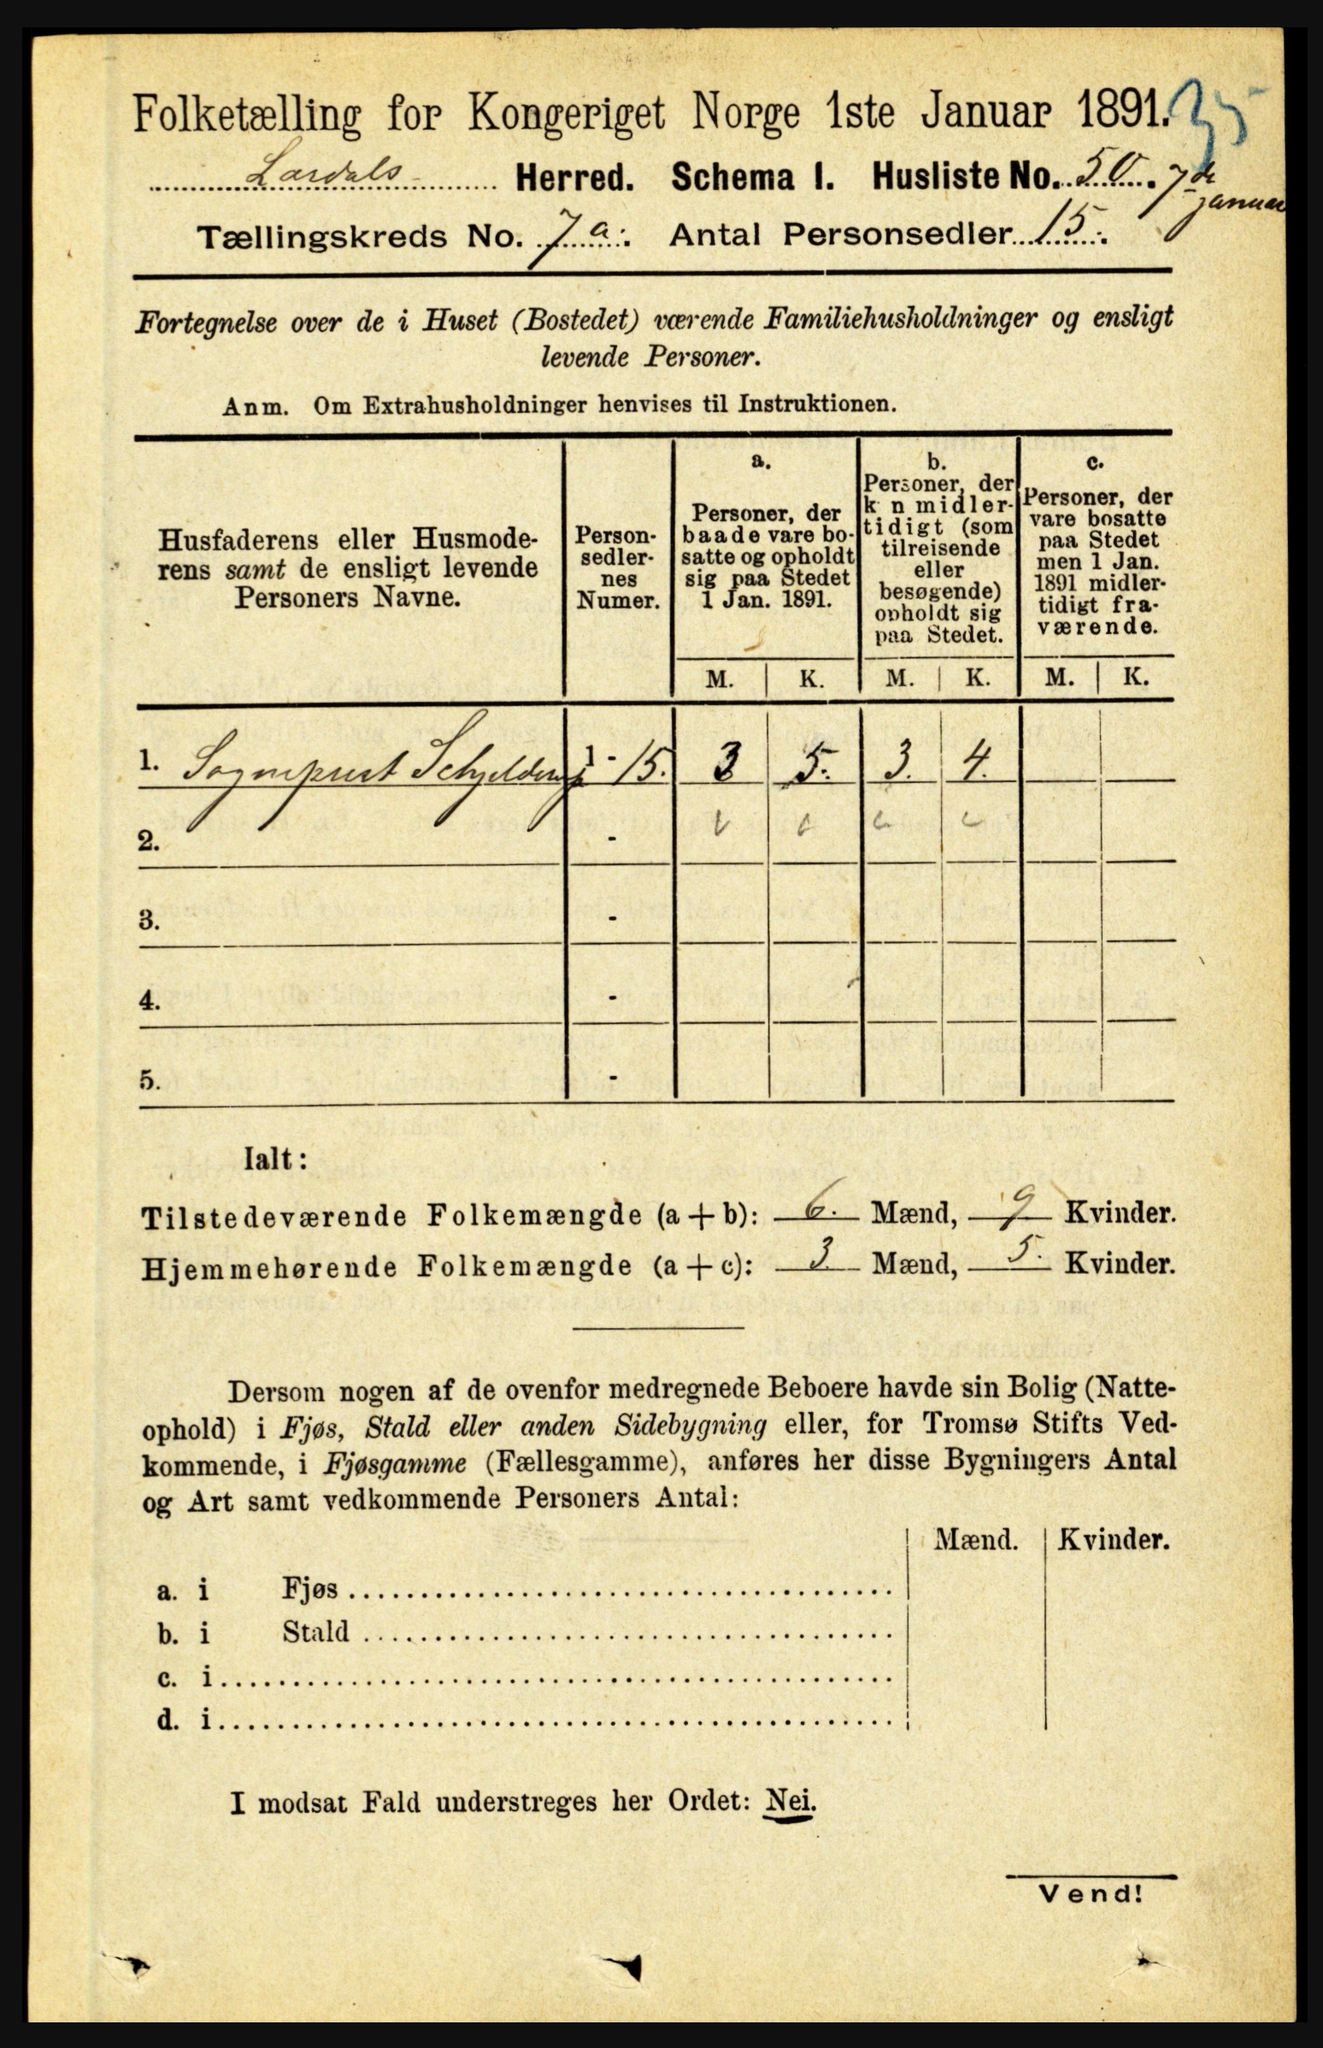 Folketælling for Kongeriget Norge 1ste Januar 1891. 35
Lardals Herred. Schema I. Husliste No. 50. 7de Januar
Tællingskreds No. 7a. Antal Personsedler 15.
Fortegnelse over de i Huset (Bostedet) værende Familiehusholdninger og ensligt
levende Personer.
Anm. Om Extrahusholdninger henvises til Instruktionen.
Husfaderens eller Husmode-
rens samt de ensligt levende
Personers Navne.
Person-
sedler-
nes
Numer.
a.
Personer, der
baade vare bo-
satte og opholdt
sig paa Stedet
1 Jan. 1891.
b.
Personer, der
k n midler-
tidigt (som
tilreisende
eller
besøgende)
opholdt sig
paa Stedet.
c.
Personer, der
vare bosatte
paa Stedet
men 1 Jan.
1891 midler-
tidigt fra-
værende.
M. K. M. K. M. K.
1. Sogneprest Schjelderup 1 - 15. 3 5. 3. 4.
2. -
3. -
4. -
5. -
Ialt:
Tilstedeværende Folkemængde (a + b): 6. Mænd, 9 Kvinder.
Hjemmehørende Folkemængde (a + c): 3 Mænd, 5. Kvinder.
Dersom nogen af de ovenfor medregnede Beboere havde sin Bolig (Natte-
ophold) i Fjøs, Stald eller anden Sidebygning eller, for Tromsø Stifts Ved-
kommende, i Fjøsgamme (Fællesgamme), anføres her disse Bygningers Antal
og Art samt vedkommende Personers Antal:
Mænd. Kvinder.
a. i Fjøs
b. i Stald
c. i
d. i
I modsat Fald understreges her Ordet: Nei.
Vend!